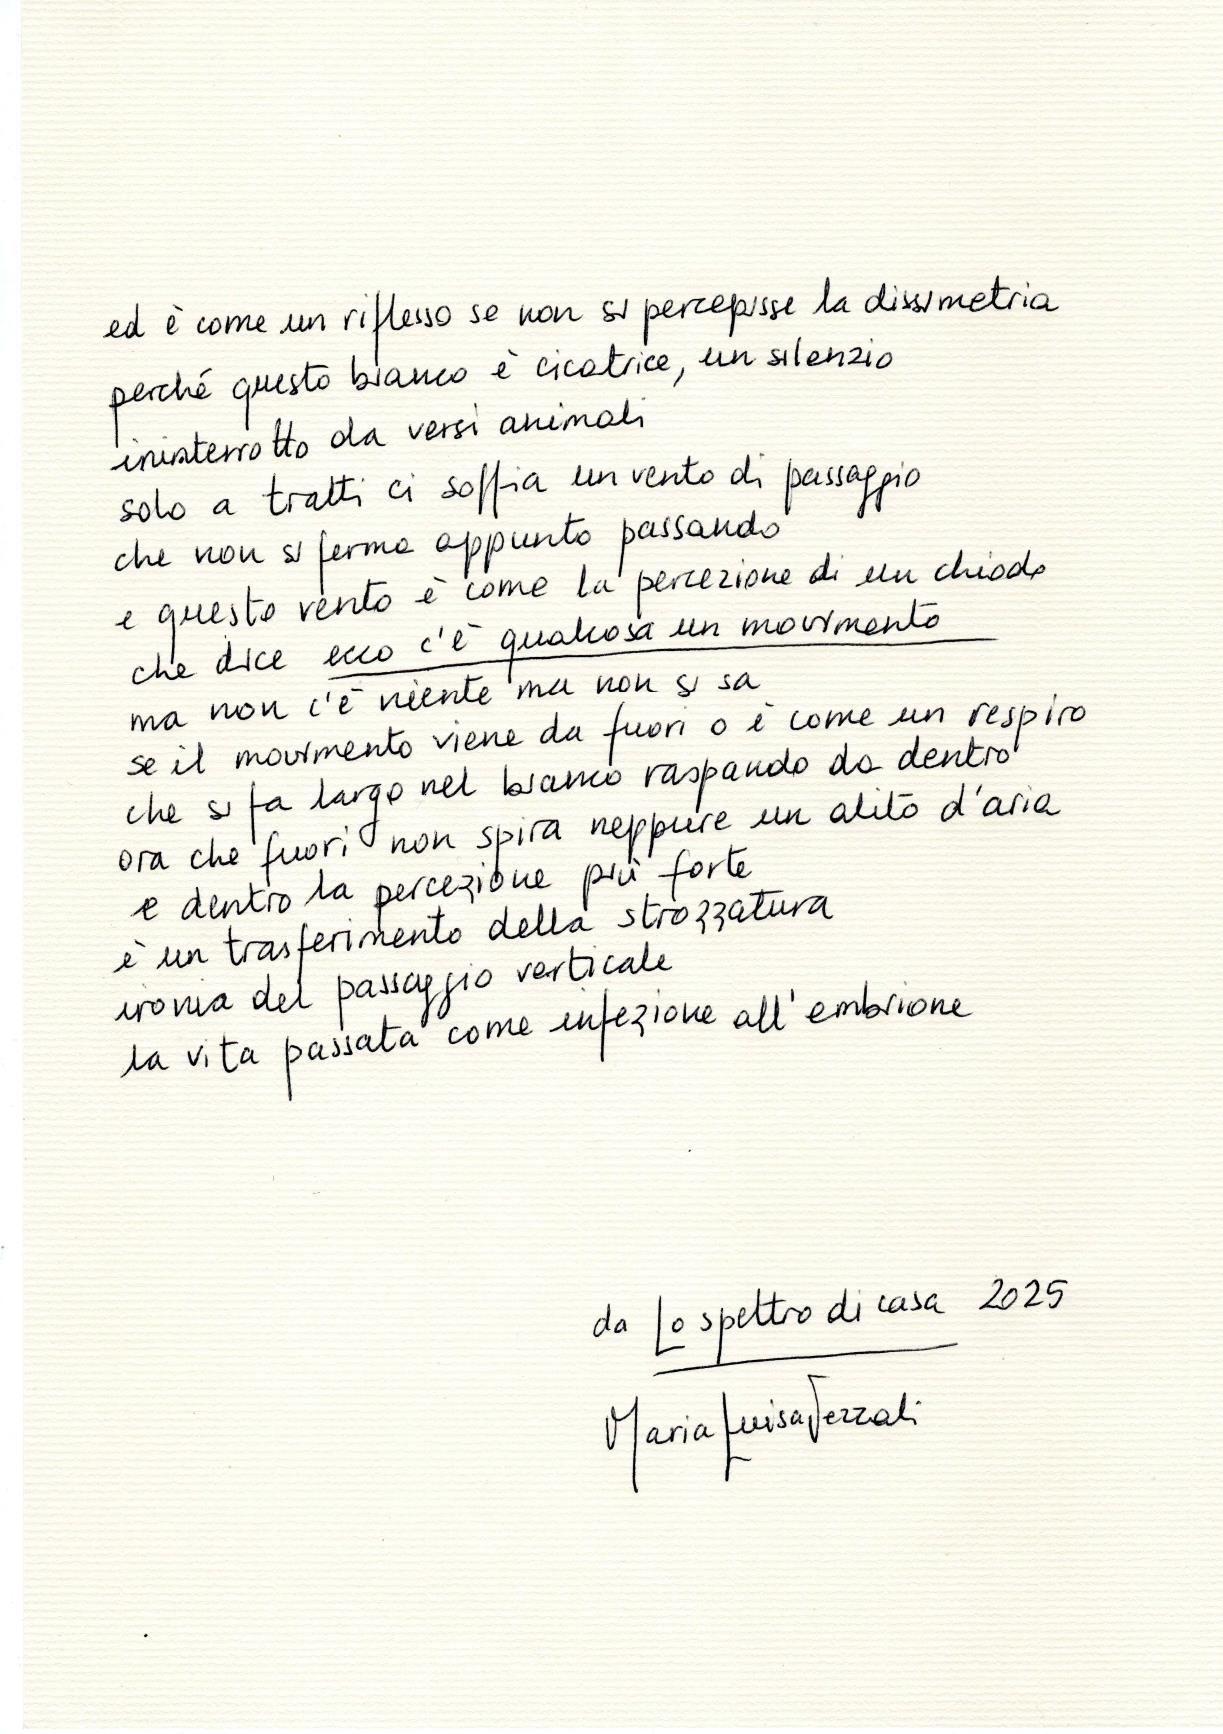 ed è come un riflesso se non si percepisse la dissimetria
perché questo bianco è cicatrice, un silenzio
ininterrotto da versi animali
solo a tratti ci soffia un vento di passaggio
che non si ferma appunto passando
e questo vento è come la percezione di un chiodo
che dice ecco c'è qualcosa un movimento
ma non c'è niente ma non si sa
se il movimento viene da fuori o è come un respiro
che si fa largo nel bianco raspando da dentro
ora che fuori non spira neppure un alito d'aria
e dentro la percezione più forte
è un trasferimento della strozzatura
ironia del passaggio verticale
la vita passata come infezione all'embrione
da Lo spettro di casa 2025
Maria Luisa Vezzali